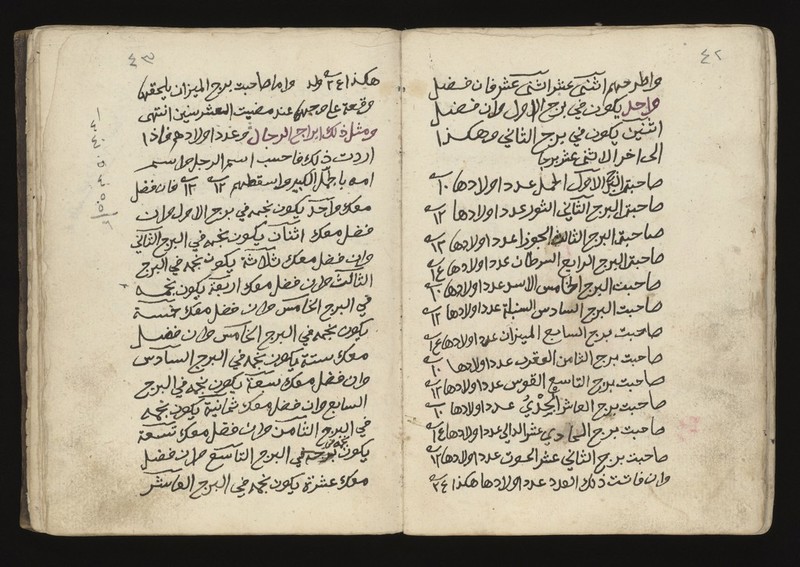 ٤٢
واطرحهم اثنى عشر اثنى عشر فان فضل
واحد يكون في برج الاول وان فضل
اثنين يكون في برج الثاني وهكذا
الى اخر الاثنى عشر برجا
صاحبة البرج الاول الحمل عدد اولادها ١٠
صاحبة البرج الثاني الثور عدد اولادها ١٢
صاحبة البرج الثالث الجوزا عدد اولادها ١٣
صاحبة البرج الرابع السرطان عدد اولادها ١٤
صاحبت البرج الخامس الاسد عدد اولادها ١٠
صاحبت البرج السادس السنبلة عدد اولادها ١٢
صاحبت برج السابع الميزان عدد اولادها ١٤
صاحبت برج الثامن العقرب عدد اولادها ١٠
صاحبت برج التاسع القوس عدد اولادها ١٢
صاحبت برج العاشر الجدي عدد اولادها ١٠
صاحبت برج الحادي عشر الدالي عدد اولادها ١٤
صاحبت برج الثاني عشر الحوت عدد اولادها ١٢
وان فاتت ذلك العدد عدد اولادها هكذا ٣٤
٤٣
هكذا ٣٤ ولد واما صاحبت برج الميزان يلحقها
وقعة على وجهها عند مضيت العشر سنين انتهى
ومثل ذلك ابراج الرجال وعدد اولادهم فاذا
اردت ذلك فاحسب اسم الرجل واسم
امه بالجمل الكبير واسقطهم ١٢ ١٢ فان فضل
معك واحد يكون نجمه في برج الاول وان
فضل معك اثنان يكون نجمه في البرج الثاني
وان فضل معك ثلاثة يكون نجمه في البرج
الثالث وان فضل معك اربعة يكون نجمه
في البرج الخامس وان فضل معك خمسة
يكون نجمه في البرج الخامس وان فضل
معك ستة يكون نجمه في البرج السادس
وان فضل معك سبعة يكون نجمه في البرج
السابع وان فضل معك ثمانية يكون نجمه
في البرج الثامن وان فضل معك تسعة
يكون نجمه في البرج التاسع وان فضل
معك عشرة يكون نجمه في البرج العاشر